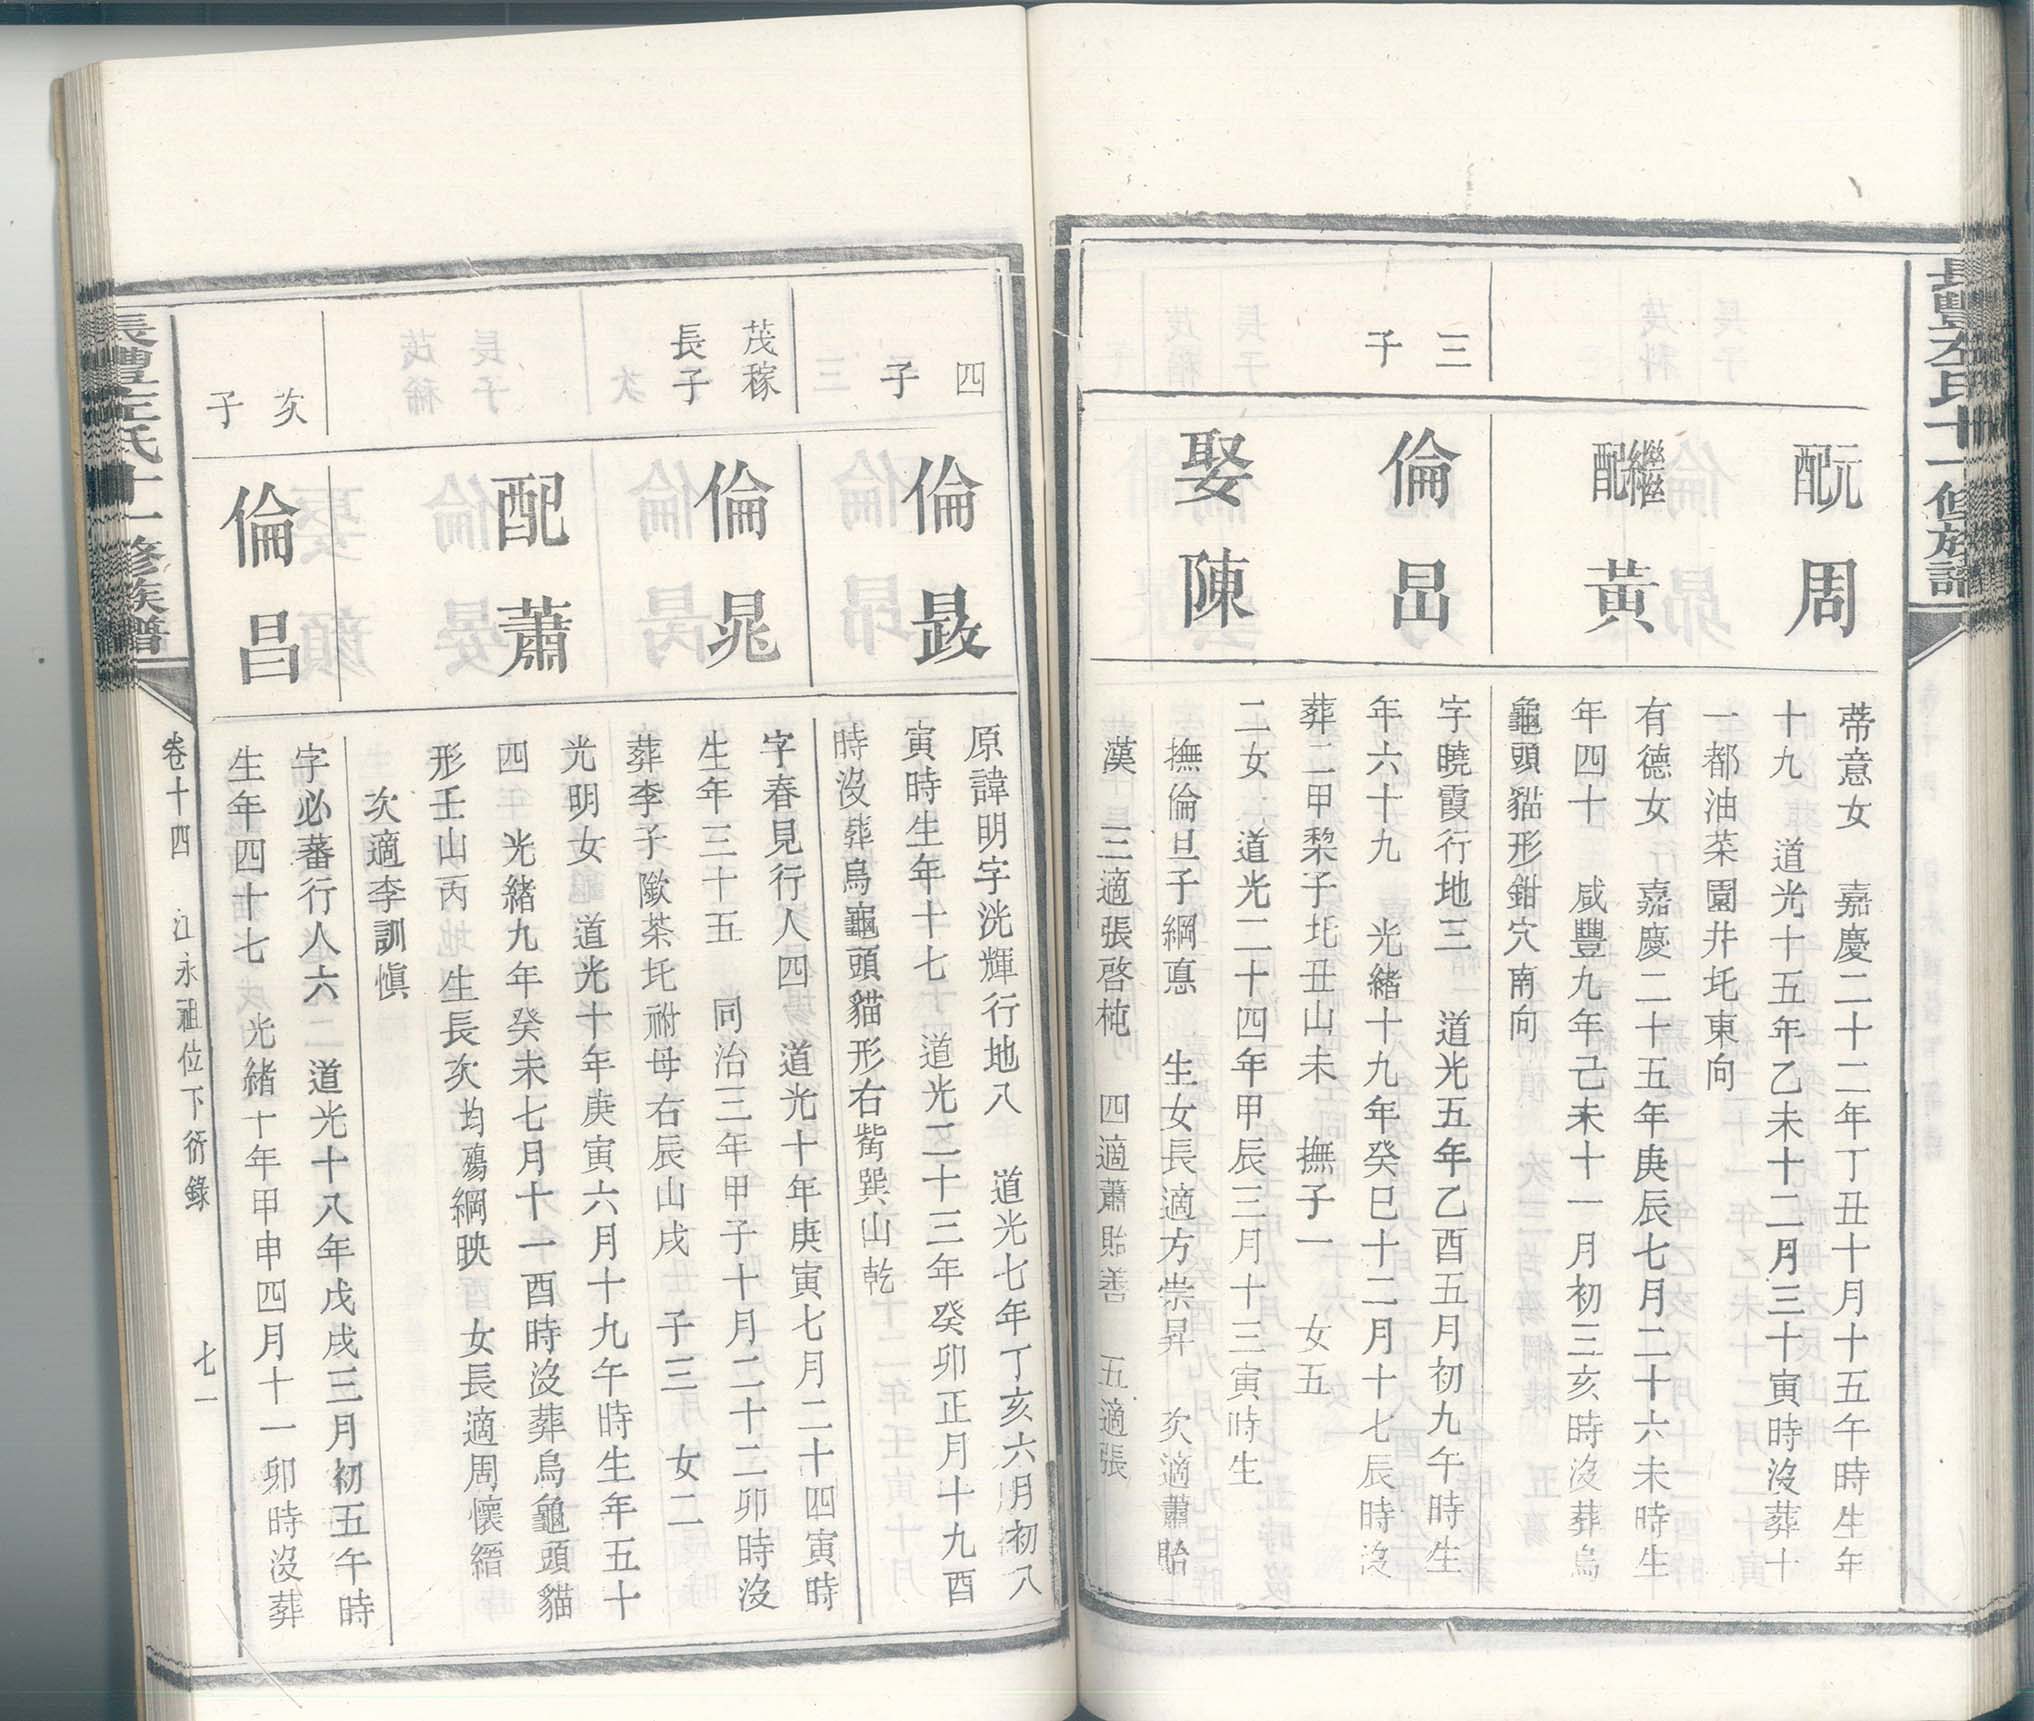 長豐左氏十一修族譜
元配周
蒂意女　嘉慶二十二年丁丑十月十五午時生年
十九　道光十五年乙未十二月三十寅時沒葬十
一都油菜園井圫東向
繼配黃
有德女　嘉慶二十五年庚辰七月二十六未時生
年四十　咸豐九年己未十一月初三亥時沒葬烏
龜頭貓形鉗穴南向
三子
倫昢
字曉霞行地三　道光五年乙酉五月初九午時生
年六十九　光緒十九年癸巳十二月十七辰時沒
葬二甲梨子圫丑山未　撫子一　女五
娶陳
二女　道光二十四年甲辰三月十三寅時生
撫倫旦子綱惪　生女長適方崇昇　次適蕭貽
漢　三適張啓㭃　四適蕭貽善　五適張
四子
倫晸
原諱明字洸輝行地八　道光七年丁亥六月初八
寅時生年十七　道光二十三年癸卯正月十九酉
時沒葬烏龜頭貓形右觜巽山乾
茂稼長子
倫晁
字春見行人四　道光十年庚寅七月二十四寅時
生年三十五　同治三年甲子十月二十二卯時沒
葬李子歘茶圫祔母右辰山戌　子三　女二
配蕭
光明女　道光十年庚寅六月十九午時生年五十
四　光緒九年癸未七月十一酉時沒葬烏龜頭貓
形壬山丙　生長次均殤綱映　女長適周懷縉
次適李訓慎
次子
倫昌
字必蕃行人六　道光十八年戊戌三月初五午時
生年四十七　光緒十年甲申四月十一卯時沒葬
長豐左氏十一修族譜
卷十四　江永祖位下衍錄　七一